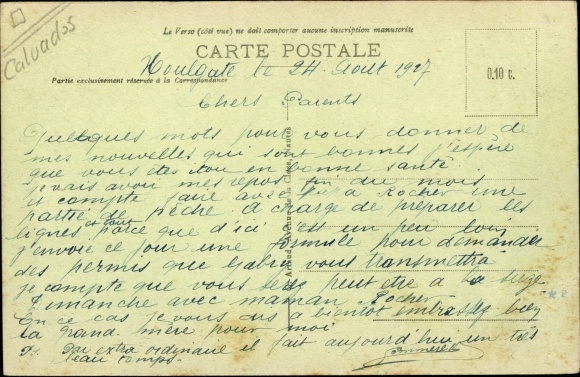 Calvados
Le Verso (côté vue) ne doit comporter aucune inscription manuscrite
CARTE POSTALE
Houlgate le 24 Aout 1927
Partie exclusivement réservée à la Correspondance
0.10 c.
Chers Parents
Quelques mots pour vous donner de
mes nouvelles qui sont bonnes j'espère
que vous etes itou en bonne santé.
je vais avoir mes repos fin du mois
et compte faire avec Rocher une
partie de pêche. A charge de préparer les
lignes et tout parce que d'ici c'est un peu loin
j'envoie ce jour une formule pour demander
des permis que Gabry vous transmettra
je compte que vous serez peut etre à la
Dimanche avec maman Rocher
En ce cas je vous dis à bientot embrassez bien
la Grand-mère pour moi
Par extraordinaire il fait aujourd'hui un très
beau temps